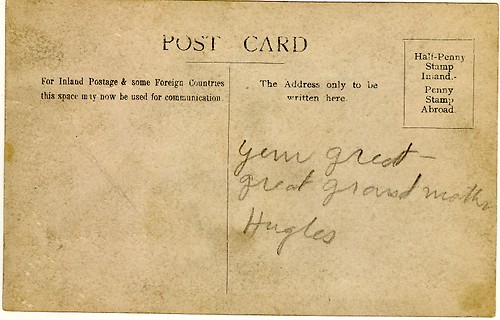 POST CARD
For Inland Postage & some Foreign Countries
this space may now be used for communication.
The Address only to be
written here.
Half-Penny
Stamp
Inland.-
Penny
Stamp
Abroad.
your great-
great grandmother
Hugles